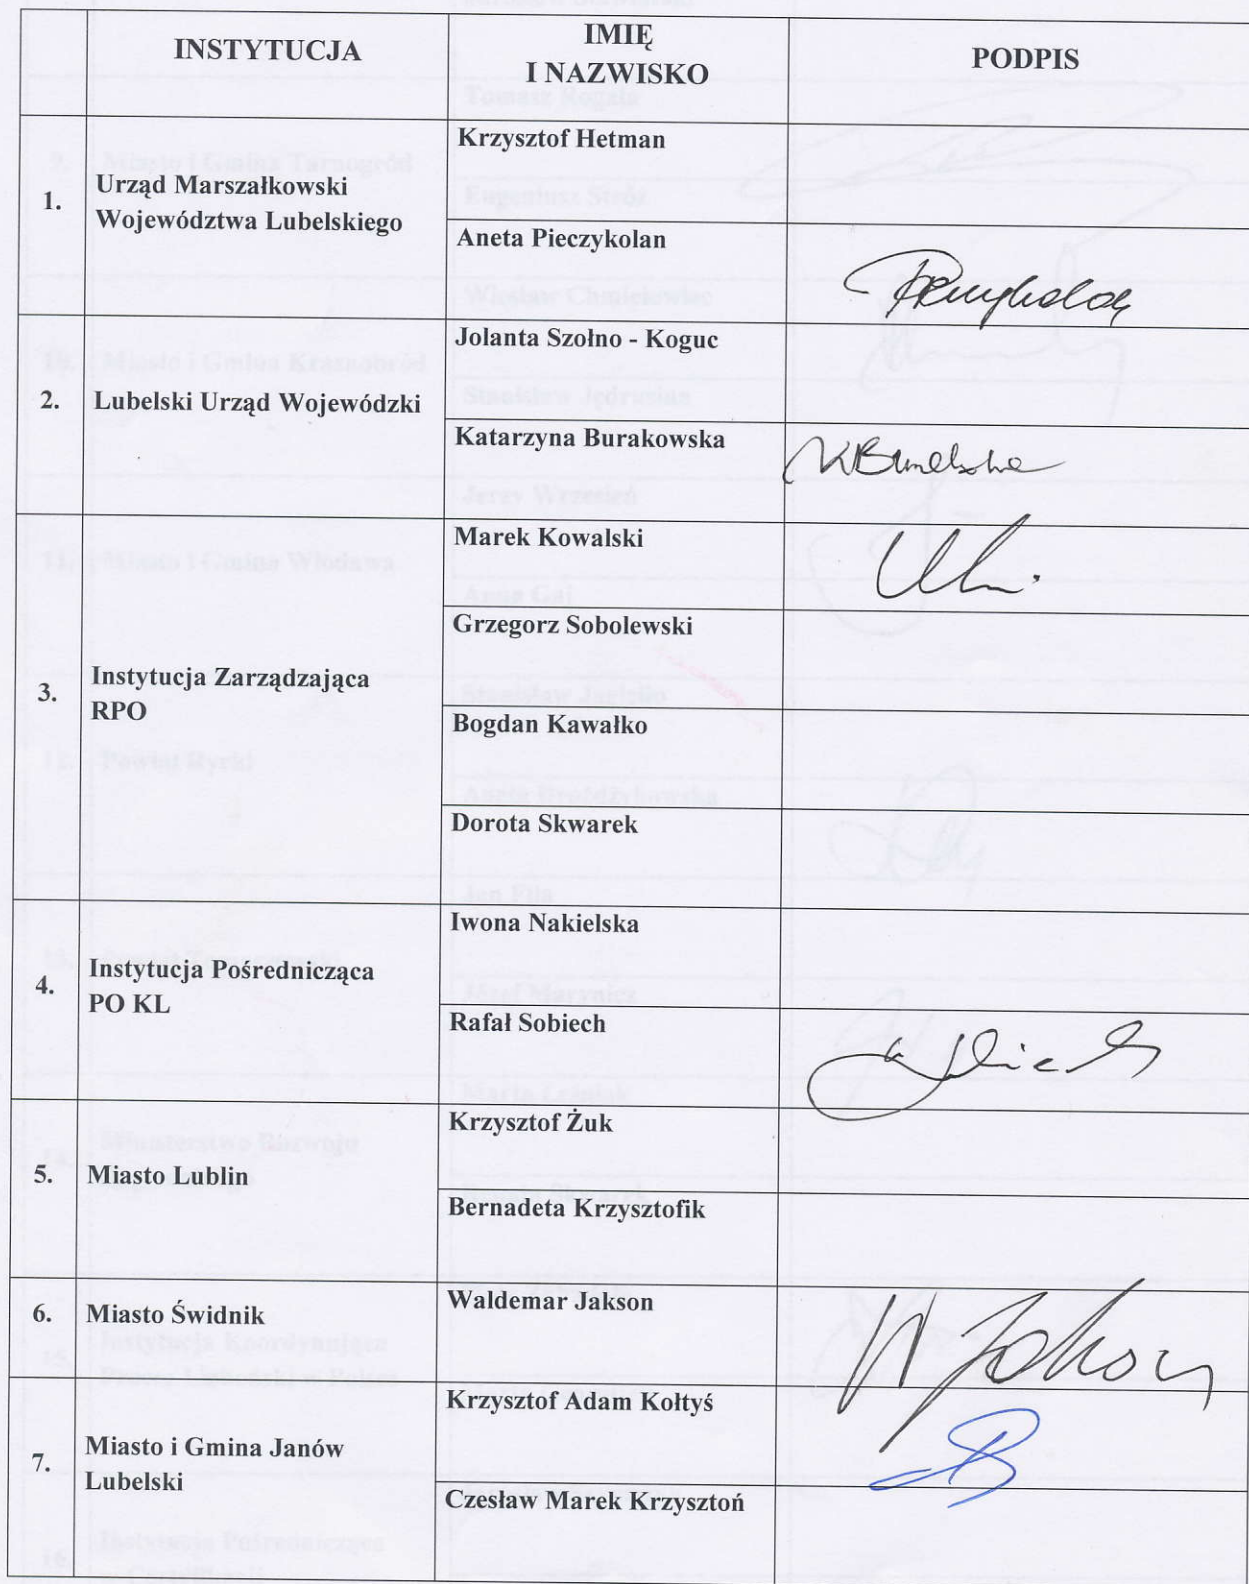 INSTYTUCJA
IMIĘ
I NAZWISKO
PODPIS
1.
Urząd Marszałkowski
Województwa Lubelskiego
Krzysztof Hetman
Aneta Pieczykolan
2.
Lubelski Urząd Wojewódzki
Jolanta Szołno - Koguc
Katarzyna Burakowska
3.
Instytucja Zarządzająca
RPO
Marek Kowalski
Grzegorz Sobolewski
Bogdan Kawałko
Dorota Skwarek
4.
Instytucja Pośrednicząca
PO KL
Iwona Nakielska
Rafał Sobiech
5.
Miasto Lublin
Krzysztof Żuk
Bernadeta Krzysztofik
6.
Miasto Świdnik
Waldemar Jakson
7.
Miasto i Gmina Janów
Lubelski
Krzysztof Adam Kołtyś
Czesław Marek Krzysztoń